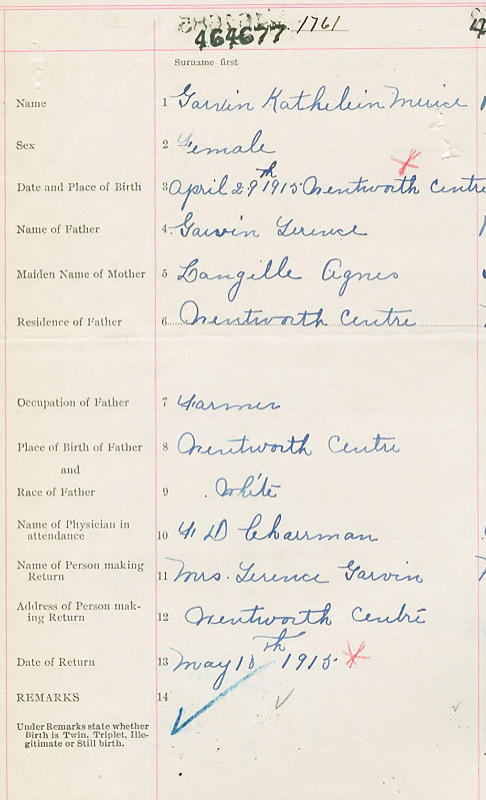 464677
1761
Surname first
Name 1 Garvin Kathelein Merice
Sex 2 Female
Date and Place of Birth 3 April 29th 1915 Wentworth Centre
Name of Father 4 Garvin Terence
Maiden Name of Mother 5 Langille Agnes
Residence of Father 6 Wentworth Centre
Occupation of Father 7 Farmer
Place of Birth of Father 8 Wentworth Centre
and
Race of Father 9 White
Name of Physician in
attendance 10 F D Charman
Name of Person making
Return 11 Mrs. Terence Garvin
Address of Person mak-
ing Return 12 Wentworth Centre
Date of Return 13 May 10th 1915
REMARKS 14
Under Remarks state whether
Birth is Twin, Triplet, Ille-
gitimate or Still birth.